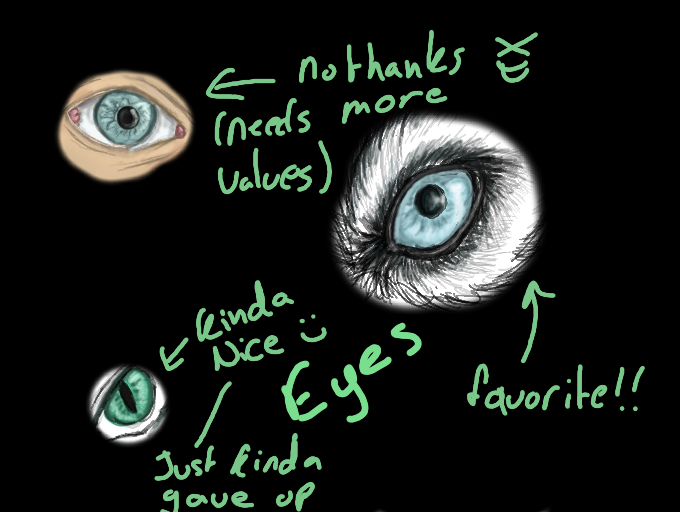 no thanks XP
(needs more
values)
Kinda
Nice :)
Eyes
favorite!!
Just kinda
gave up